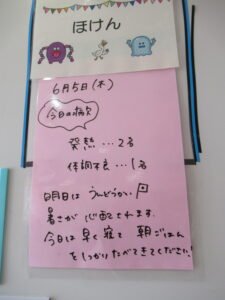 ほけん
6月5日(木)
今日の病欠
発熱…2名
体調不良…1名
明日はうんどうかい
暑さが心配されます。
今日は早く寝て朝ごはん
をしっかりたべてきてください!